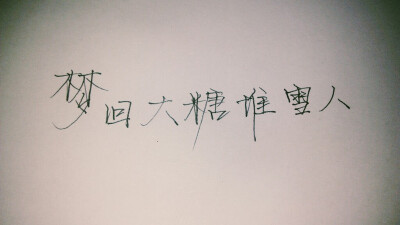 梦回大糖谁雪人